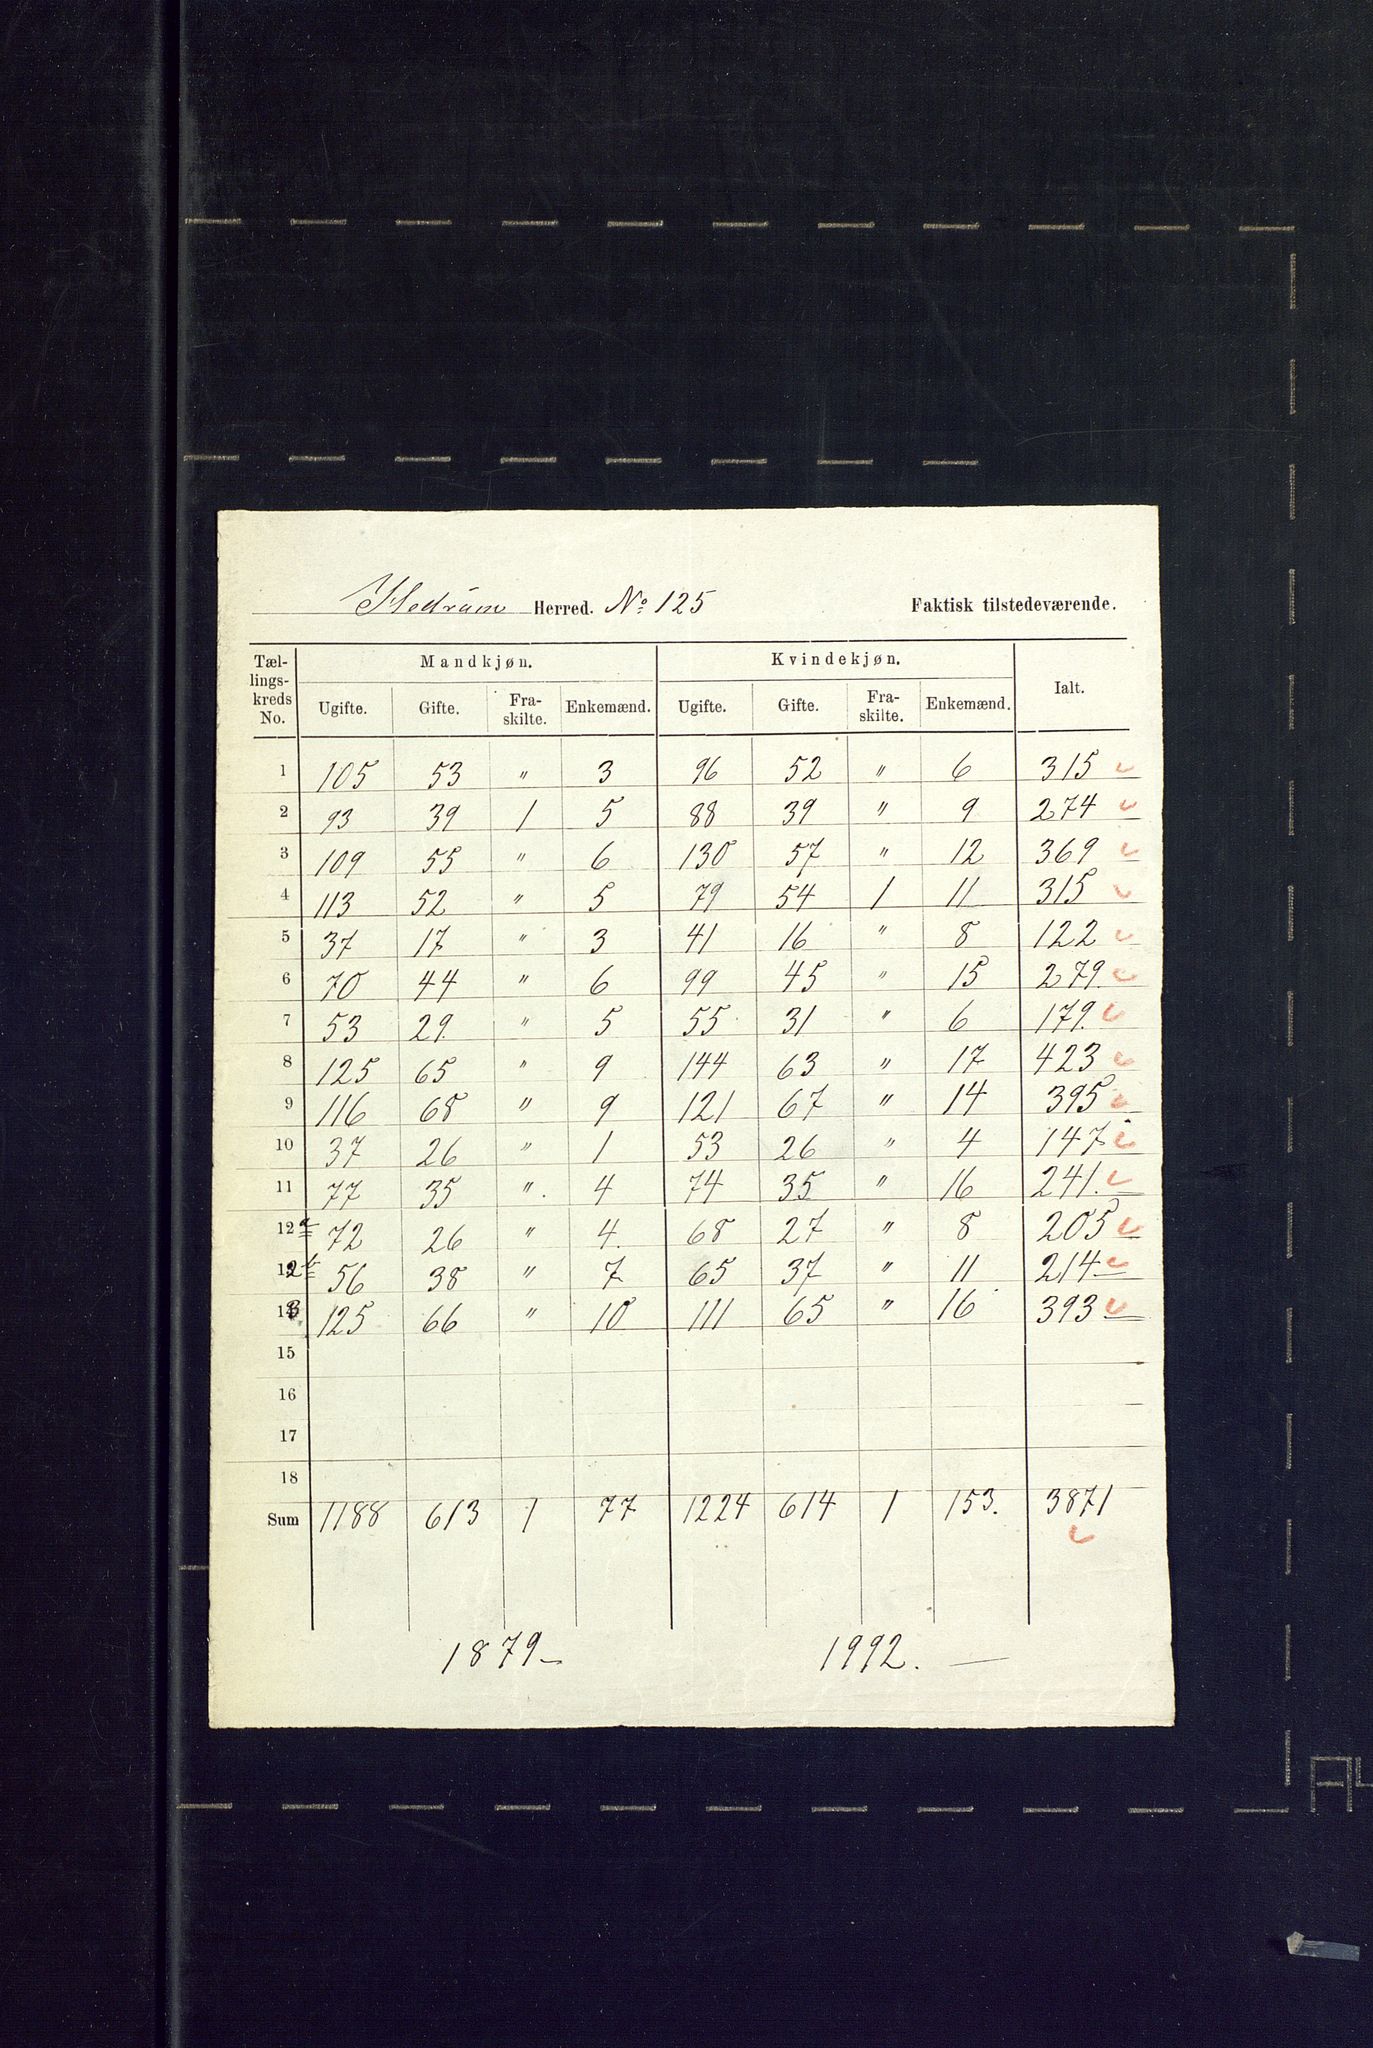 Hedrum Herred. No 125 Faktisk tilstedeværende.
Tællingskreds No. Mandkjøn. Kvindekjøn. Ialt.
Ugifte. Gifte. Fraskilte. Enkemænd. Ugifte. Gifte. Fraskilte. Enkemænd.
1 105 53 " 3 96 52 " 6 315
2 93 39 1 5 88 39 " 9 274
3 109 55 " 6 130 57 " 12 369
4 113 52 " 5 79 54 1 11 315
5 37 17 " 3 41 16 " 8 122
6 70 44 " 6 99 45 " 15 279.
7 53 29. " 5 55 31 " 6 179.
8 125 65 " 9 144 63 " 17 423
9 116 68 " 9 121 67 " 14 395
10 37 26 " 1 53 26 " 4 147
11 77 35 " 4 74 35 " 16 241.
12a 72 26 " 4. 68 27 " 8 205
12b 56 38 " 7 65 37 " 11 214
13 125 66 " 10 111 65 " 16 393
15
16
17
18
Sum 1188 613 1 77 1224 614 1 153. 3871
1879— 1992. —
A4